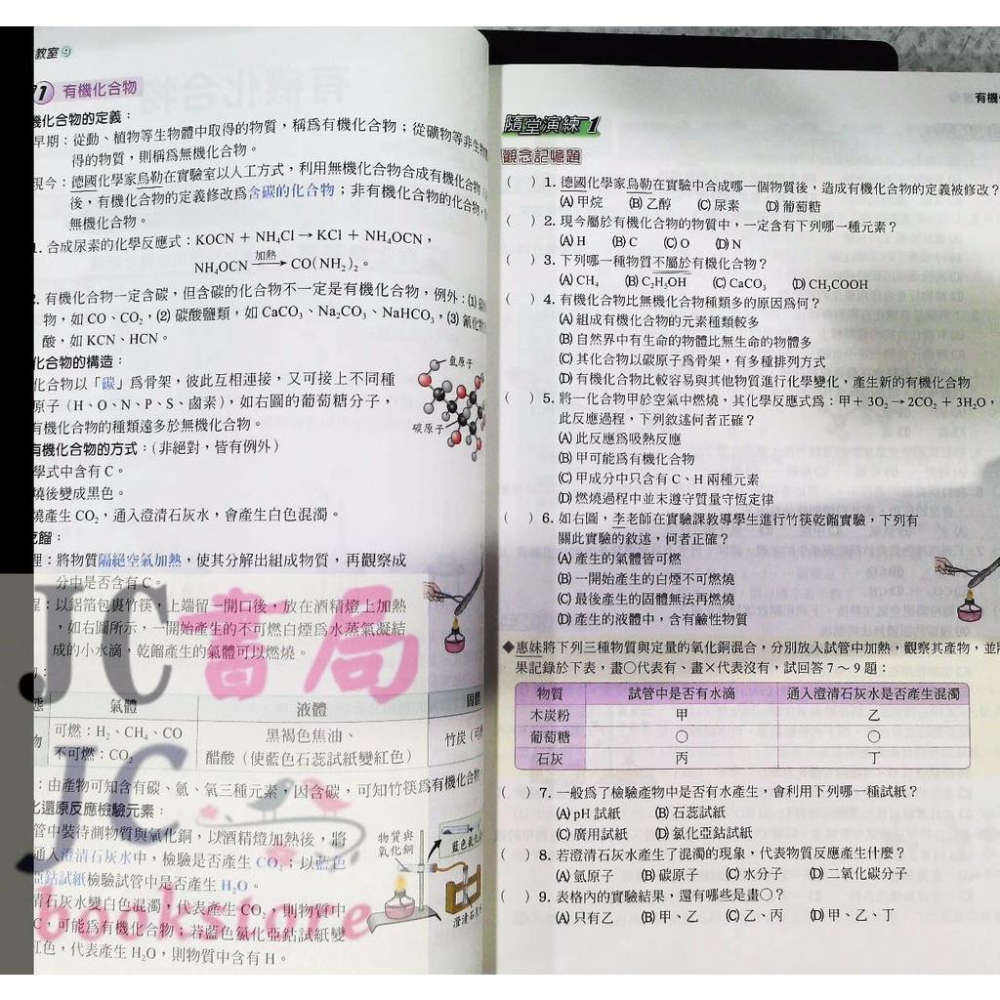 教室 9
1 有機化合物
機化合物的定義：
早期：從動、植物等生物體中取得的物質，稱爲有機化合物；從礦物等非生物
得的物質，則稱爲無機化合物。
現今：德國化學家烏勒在實驗室以人工方式，利用無機化合物合成有機化合物
後，有機化合物的定義修改爲含碳的化合物；非有機化合物的化合物，
無機化合物。
1. 合成尿素的化學反應式：KOCN + NH₄Cl → KCl + NH₄OCN，
NH₄OCN 加熱→ CO(NH₂)₂。
2. 有機化合物一定含碳，但含碳的化合物不一定是有機化合物，例外：(1)
物，如 CO、CO₂，(2) 碳酸鹽類，如 CaCO₃、Na₂CO₃、NaHCO₃，(3) 氰化
酸，如 KCN、HCN。
化合物的構造：
化合物以「碳」爲骨架，彼此互相連接，又可接上不同種
原子（H、O、N、P、S、鹵素），如右圖的葡萄糖分子，
有機化合物的種類遠多於無機化合物。
氫原子
碳原子
有機化合物的方式：（非絕對，皆有例外）
學式中含有 C。
燒後變成黑色。
燒產生 CO₂，通入澄清石灰水，會產生白色混濁。
乾餾：
理：將物質隔絕空氣加熱，使其分解出組成物質，再觀察成
分中是否含有 C。
程：以鋁箔包裹竹筷，上端留一開口後，放在酒精燈上加熱
，如右圖所示，一開始產生的不可燃白煙爲水蒸氣凝結
成的小水滴，乾餾產生的氣體可以燃燒。
態 氣體 液體 固體
物 可燃：H₂、CH₄、CO 黑褐色焦油、 竹炭
不可燃：CO₂ 醋酸（使藍色石蕊試紙變紅色）
：由產物可知含有碳、氫、氧三種元素，因含碳，可知竹筷爲有機化合物
化還原反應檢驗元素：
管中裝待測物質與氧化銅，以酒精燈加熱後，將
通入澄清石灰水中，檢驗是否產生 CO₂；以藍色
亞鈷試紙檢驗試管中是否產生 H₂O。
清石灰水變白色混濁，代表產生 CO₂，則物質中
C，可能爲有機化合物，若藍色氯化亞鈷試紙變
紅色，代表產生 H₂O，則物質中含有 H。
物質與
氧化銅
澄清石灰
JC書局
JC
bookstore
有機
隨堂演練 1
觀念記憶題
( ) 1. 德國化學家烏勒在實驗中合成哪一個物質後，造成有機化合物的定義被修改？
(A) 甲烷 (B) 乙醇 (C) 尿素 (D) 葡萄糖
( ) 2. 現今屬於有機化合物的物質中，一定含有下列哪一種元素？
(A) H (B) C (C) O (D) N
( ) 3. 下列哪一種物質不屬於有機化合物？
(A) CH₄ (B) C₂H₅OH (C) CaCO₃ (D) CH₃COOH
( ) 4. 有機化合物比無機化合物種類多的原因爲何？
(A) 組成有機化合物的元素種類較多
(B) 自然界中有生命的物體比無生命的物體多
(C) 其化合物以碳原子爲骨架，有多種排列方式
(D) 有機化合物比較容易與其他物質進行化學變化，產生新的有機化合物
( ) 5. 將一化合物甲於空氣中燃燒，其化學反應式爲：甲 + 3O₂ → 2CO₂ + 3H₂O，
此反應過程，下列敘述何者正確？
(A) 此反應爲吸熱反應
(B) 甲可能爲有機化合物
(C) 甲成分中只含有 C、H 兩種元素
(D) 燃燒過程中並未遵守質量守恆定律
( ) 6. 如右圖，李老師在實驗課教導學生進行竹筷乾餾實驗，下列有
關此實驗的敘述，何者正確？
(A) 產生的氣體皆可燃
(B) 一開始產生的白煙不可燃燒
(C) 最後產生的固體無法再燃燒
(D) 產生的液體中，含有鹼性物質
◆惠妹將下列三種物質與定量的氧化銅混合，分別放入試管中加熱，觀察其產物，並
果記錄於下表，畫○代表有、畫×代表沒有，試回答 7～9 題：
物質 試管中是否有水滴 通入澄清石灰水是否產生混濁
木炭粉 甲 乙
葡萄糖 ○ ○
石灰 丙 丁
( ) 7. 一般爲了檢驗產物中是否有水產生，會利用下列哪一種試紙？
(A) pH 試紙 (B) 石蕊試紙
(C) 廣用試紙 (D) 氯化亞鈷試紙
( ) 8. 若澄清石灰水產生了混濁的現象，代表物質反應產生什麼？
(A) 氫原子 (B) 碳原子 (C) 水分子 (D) 二氧化碳分子
( ) 9. 表格內的實驗結果，還有哪些是畫○？
(A) 只有乙 (B) 甲、乙 (C) 乙、丙 (D) 甲、乙、丁